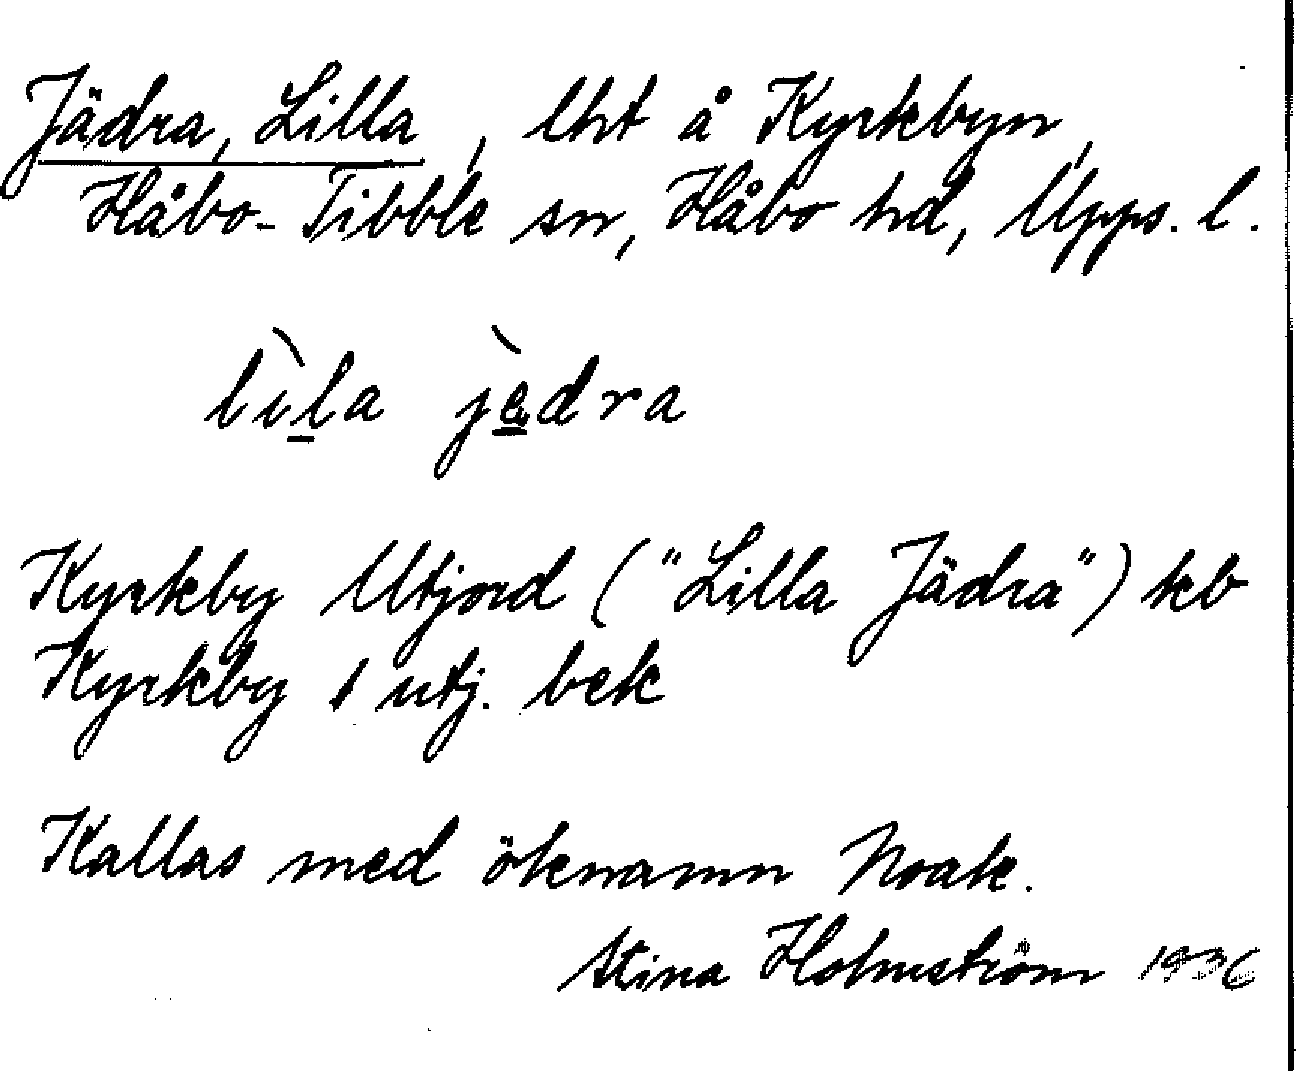 Jädra, Lilla, lht å Kyrkbyn,
Håbo-Tibble sn, Håbo hd, Upps. l.
lìl̲a jè̲dra
Kyrkby Utjord ("Lilla Jädra") kb
Kyrkby 1 utj. bek
Kallas med öknamn Noak.
Stina Holmström 1936